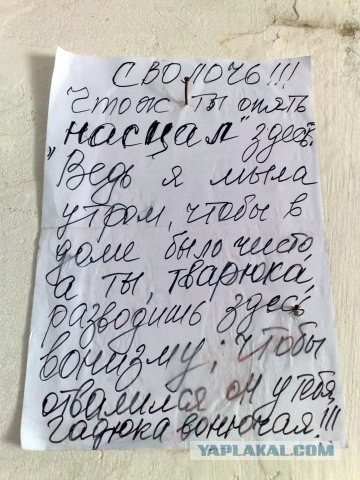 СВОЛОЧЬ!!!
Что ж ты опять
"насцал" здесь.
Ведь я мыла
утром, чтобы в
доме было чисто
а ты, тварюка,
разводишь здесь
вонизму; чтобы
отвалился он у тебя,
гадюка вонючая!!!
YAPLAKAL.COM